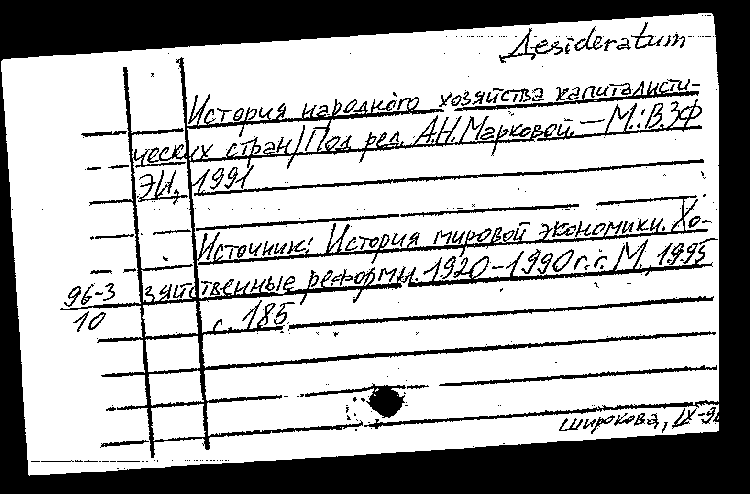 Desideratum
История народного хозяйства капиталисти-
ческих стран/Под ред. А.Н.Марковой. — М.: В.ЗФ
ЭИ, 1991
Источник: История мировой экономики. Хо-
зяйственные реформы. 1920-1990 г.г. М., 1995
96-3
10
с. 185
Широкова, IX-96